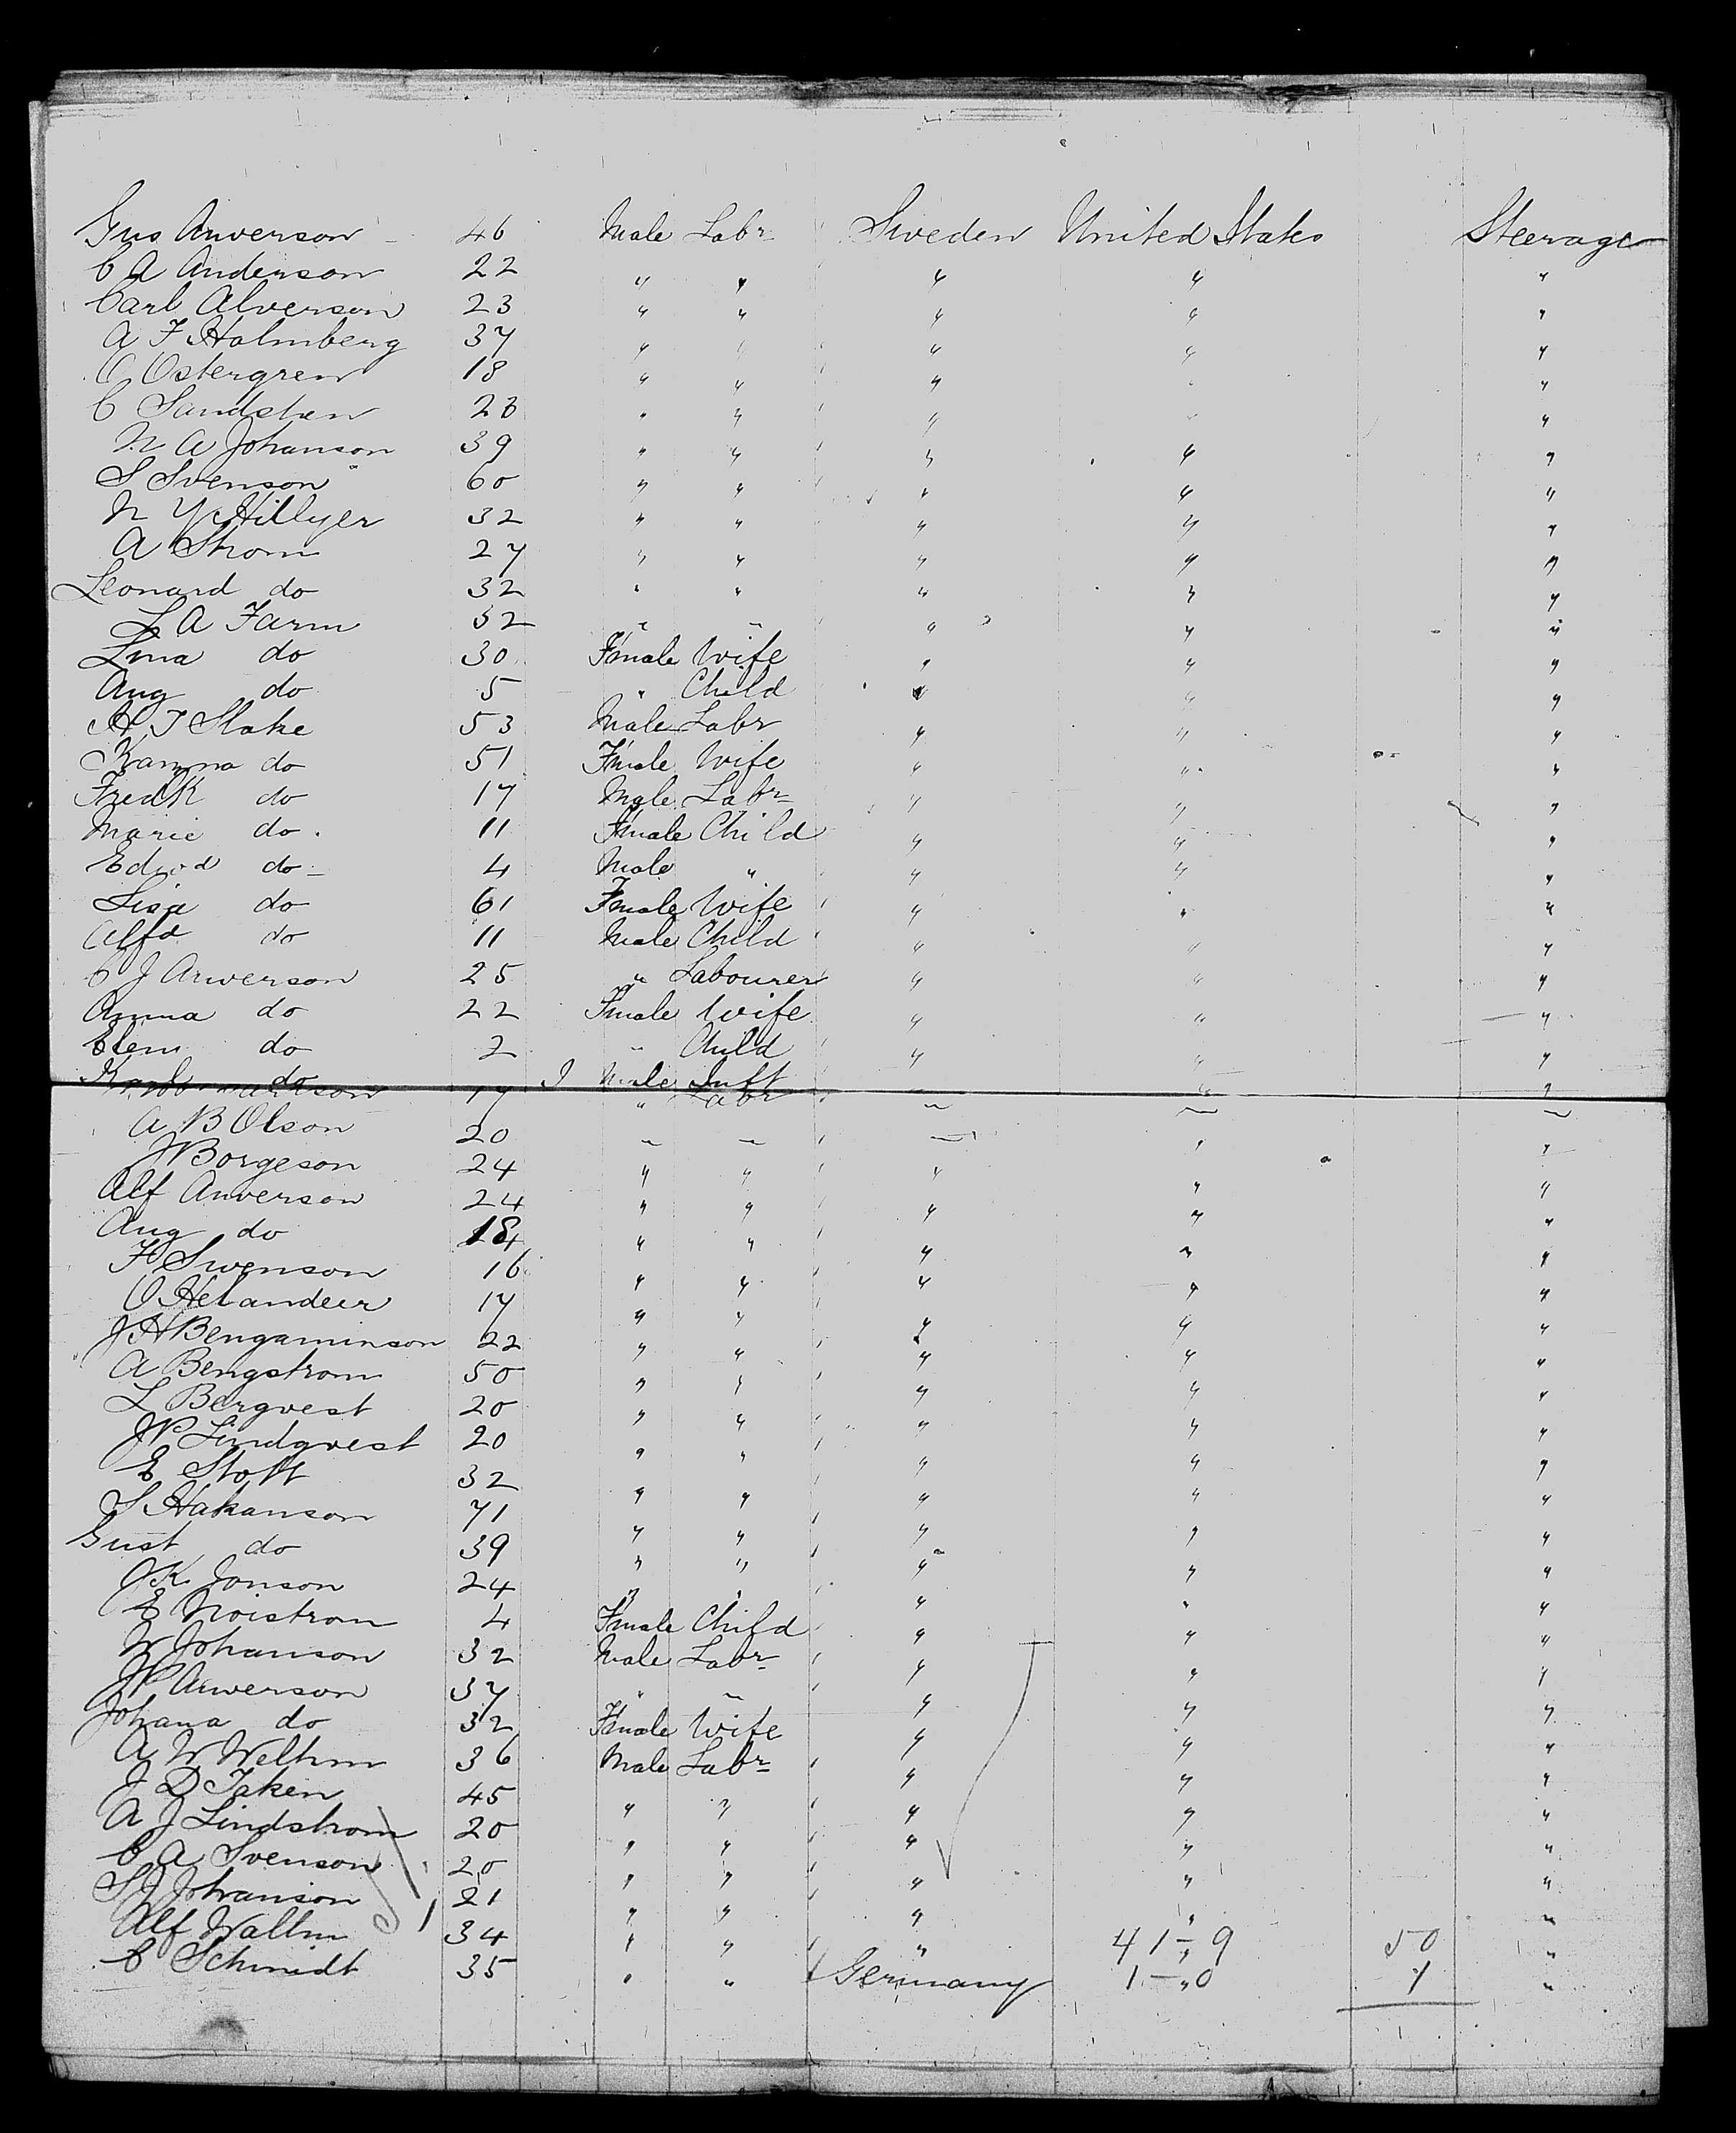 Gus Anverson 46 Male Labr Sweden United States Steerage
C A Anderson 22 " " " " "
Carl Alverson 23 " " " " "
A F Holmberg 37 " " " " "
O Ostergren 18 " " " " "
C Sandsten 23 " " " " "
N A Johanson 39 " " " " "
S Svenson 60 " " " " "
N Y Hillyer 32 " " " " "
A Strom 27 " " " " "
Leonard do 32 " " " " "
L A Farm 32 " " " " "
Lina do 30 Fmale Wife " " "
Aug do 5 " Child " " "
A J Slake 53 Male Labr " " "
Kamma do 51 Fmale Wife " " "
Fredk do 17 Male Labr " " "
Marie do 11 Fmale Child " " "
Edwd do 4 Male " " " "
Lisa do 61 Fmale Wife " " "
Alfd do 11 Male Child " " "
C J Arverson 25 " Labourer " " "
Anna do 22 Fmale Wife " " "
Elem do 2 " Child " " "
Karl do Male Inft " " "
17 " Labr " " "
A B Olson 20 " " " " "
J Borgeson 24 " " " " "
Alf Anverson 24 " " " " "
Aug do 18 " " " " "
F Swenson 16 " " " " "
O Helandeer 17 " " " " "
J H Bengaminson 22 " " " " "
A Bengstrom 50 " " " " "
L Bergvest 20 " " " " "
J P Lindqvest 20 " " " " "
E Stoft 32 " " " " "
S Hakanson 71 " " " " "
Gust do 39 " " " " "
J K Jonson 24 " " " " "
E Noistrom 4 Fmale Child " " "
N Johanson 32 Male Labr " " "
J P Arverson 37 " " " " "
Johana do 32 Fmale Wife " " "
A W Welhm 36 Male Labr " " "
J D Taken 45 " " " " "
A J Lindstrom 20 " " " " "
C A Svenson 20 " " " " "
S J Johanson 21 " " " " "
Alf Wallm 34 " " " " 41-9 50 "
C Schmidt 35 " " Germany " 1-0 1 "